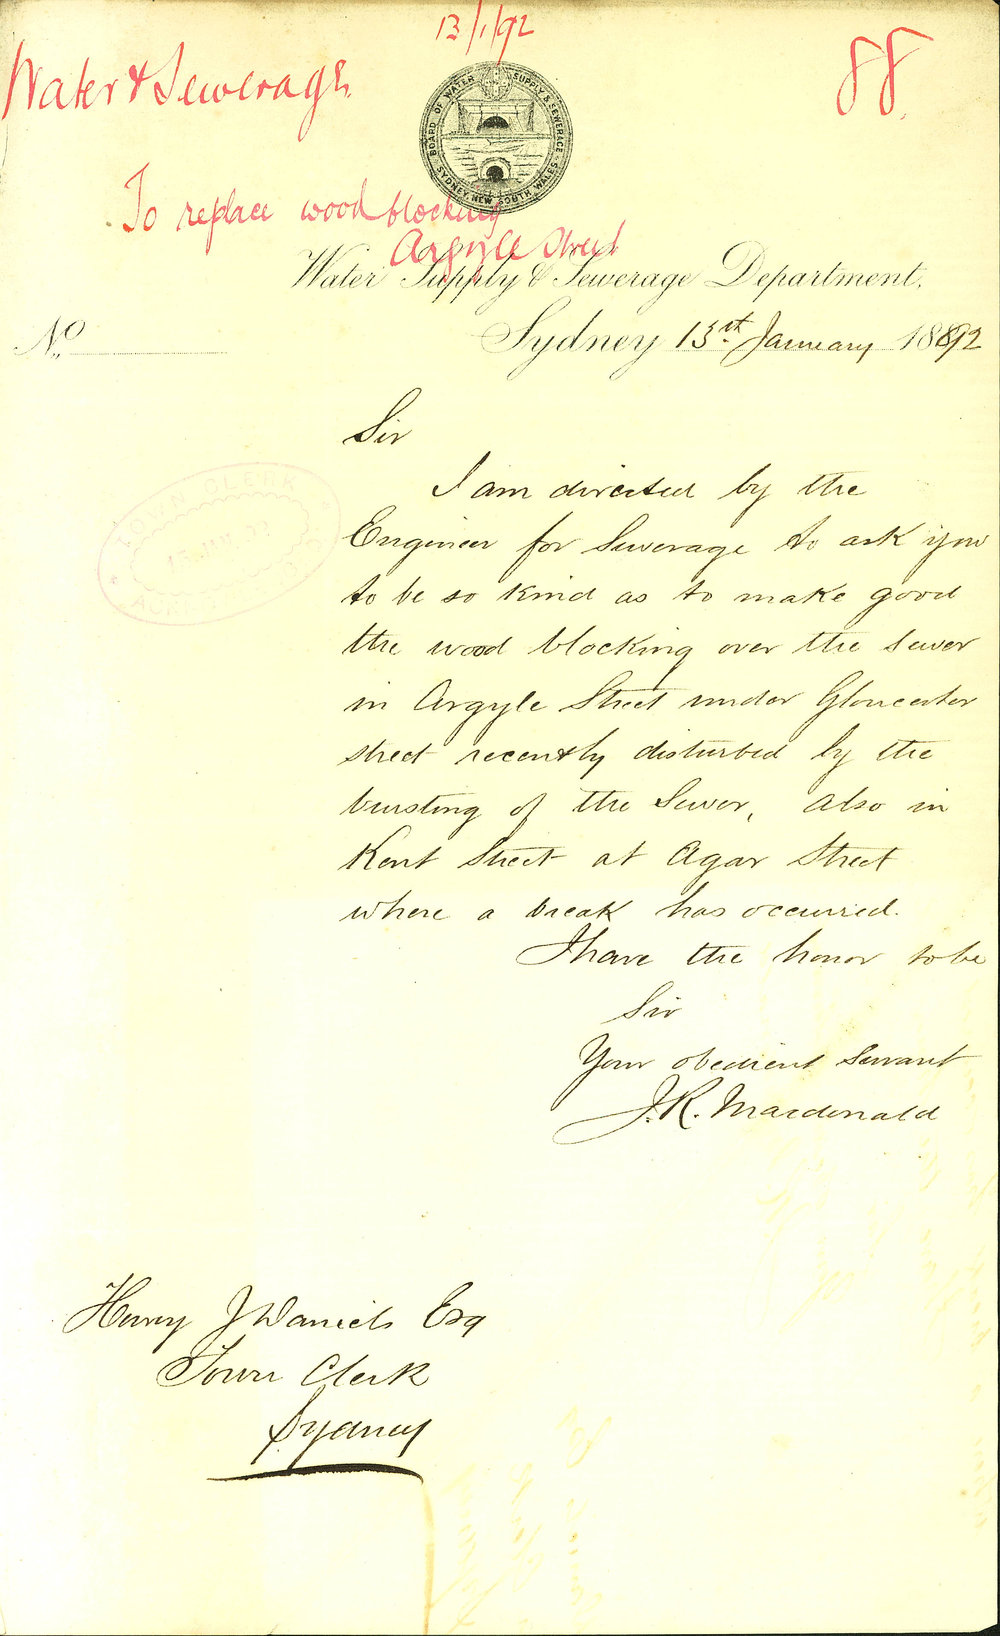 13/1/92
Water & Sewerage
88
BOARD OF WATER SUPPLY & SEWERAGE
SYDNEY, NEW SOUTH WALES
To replace wood blocking
Argyle Street
Water Supply & Sewerage Department.
No.
Sydney 13th January 1892
TOWN CLERK
Sir
I am directed by the
Engineer for Sewerage to ask you
to be so kind as to make good
the wood blocking over the sewer
in Argyle Street under Gloucester
street recently disturbed by the
bursting of the Sewer, also in
Kent Street at Agar Street
where a break has occurred.
I have the honor to be
Sir
Your obedient Servant
J.R. Macdonald
Henry J Daniels Esq
Town Clerk
Sydney